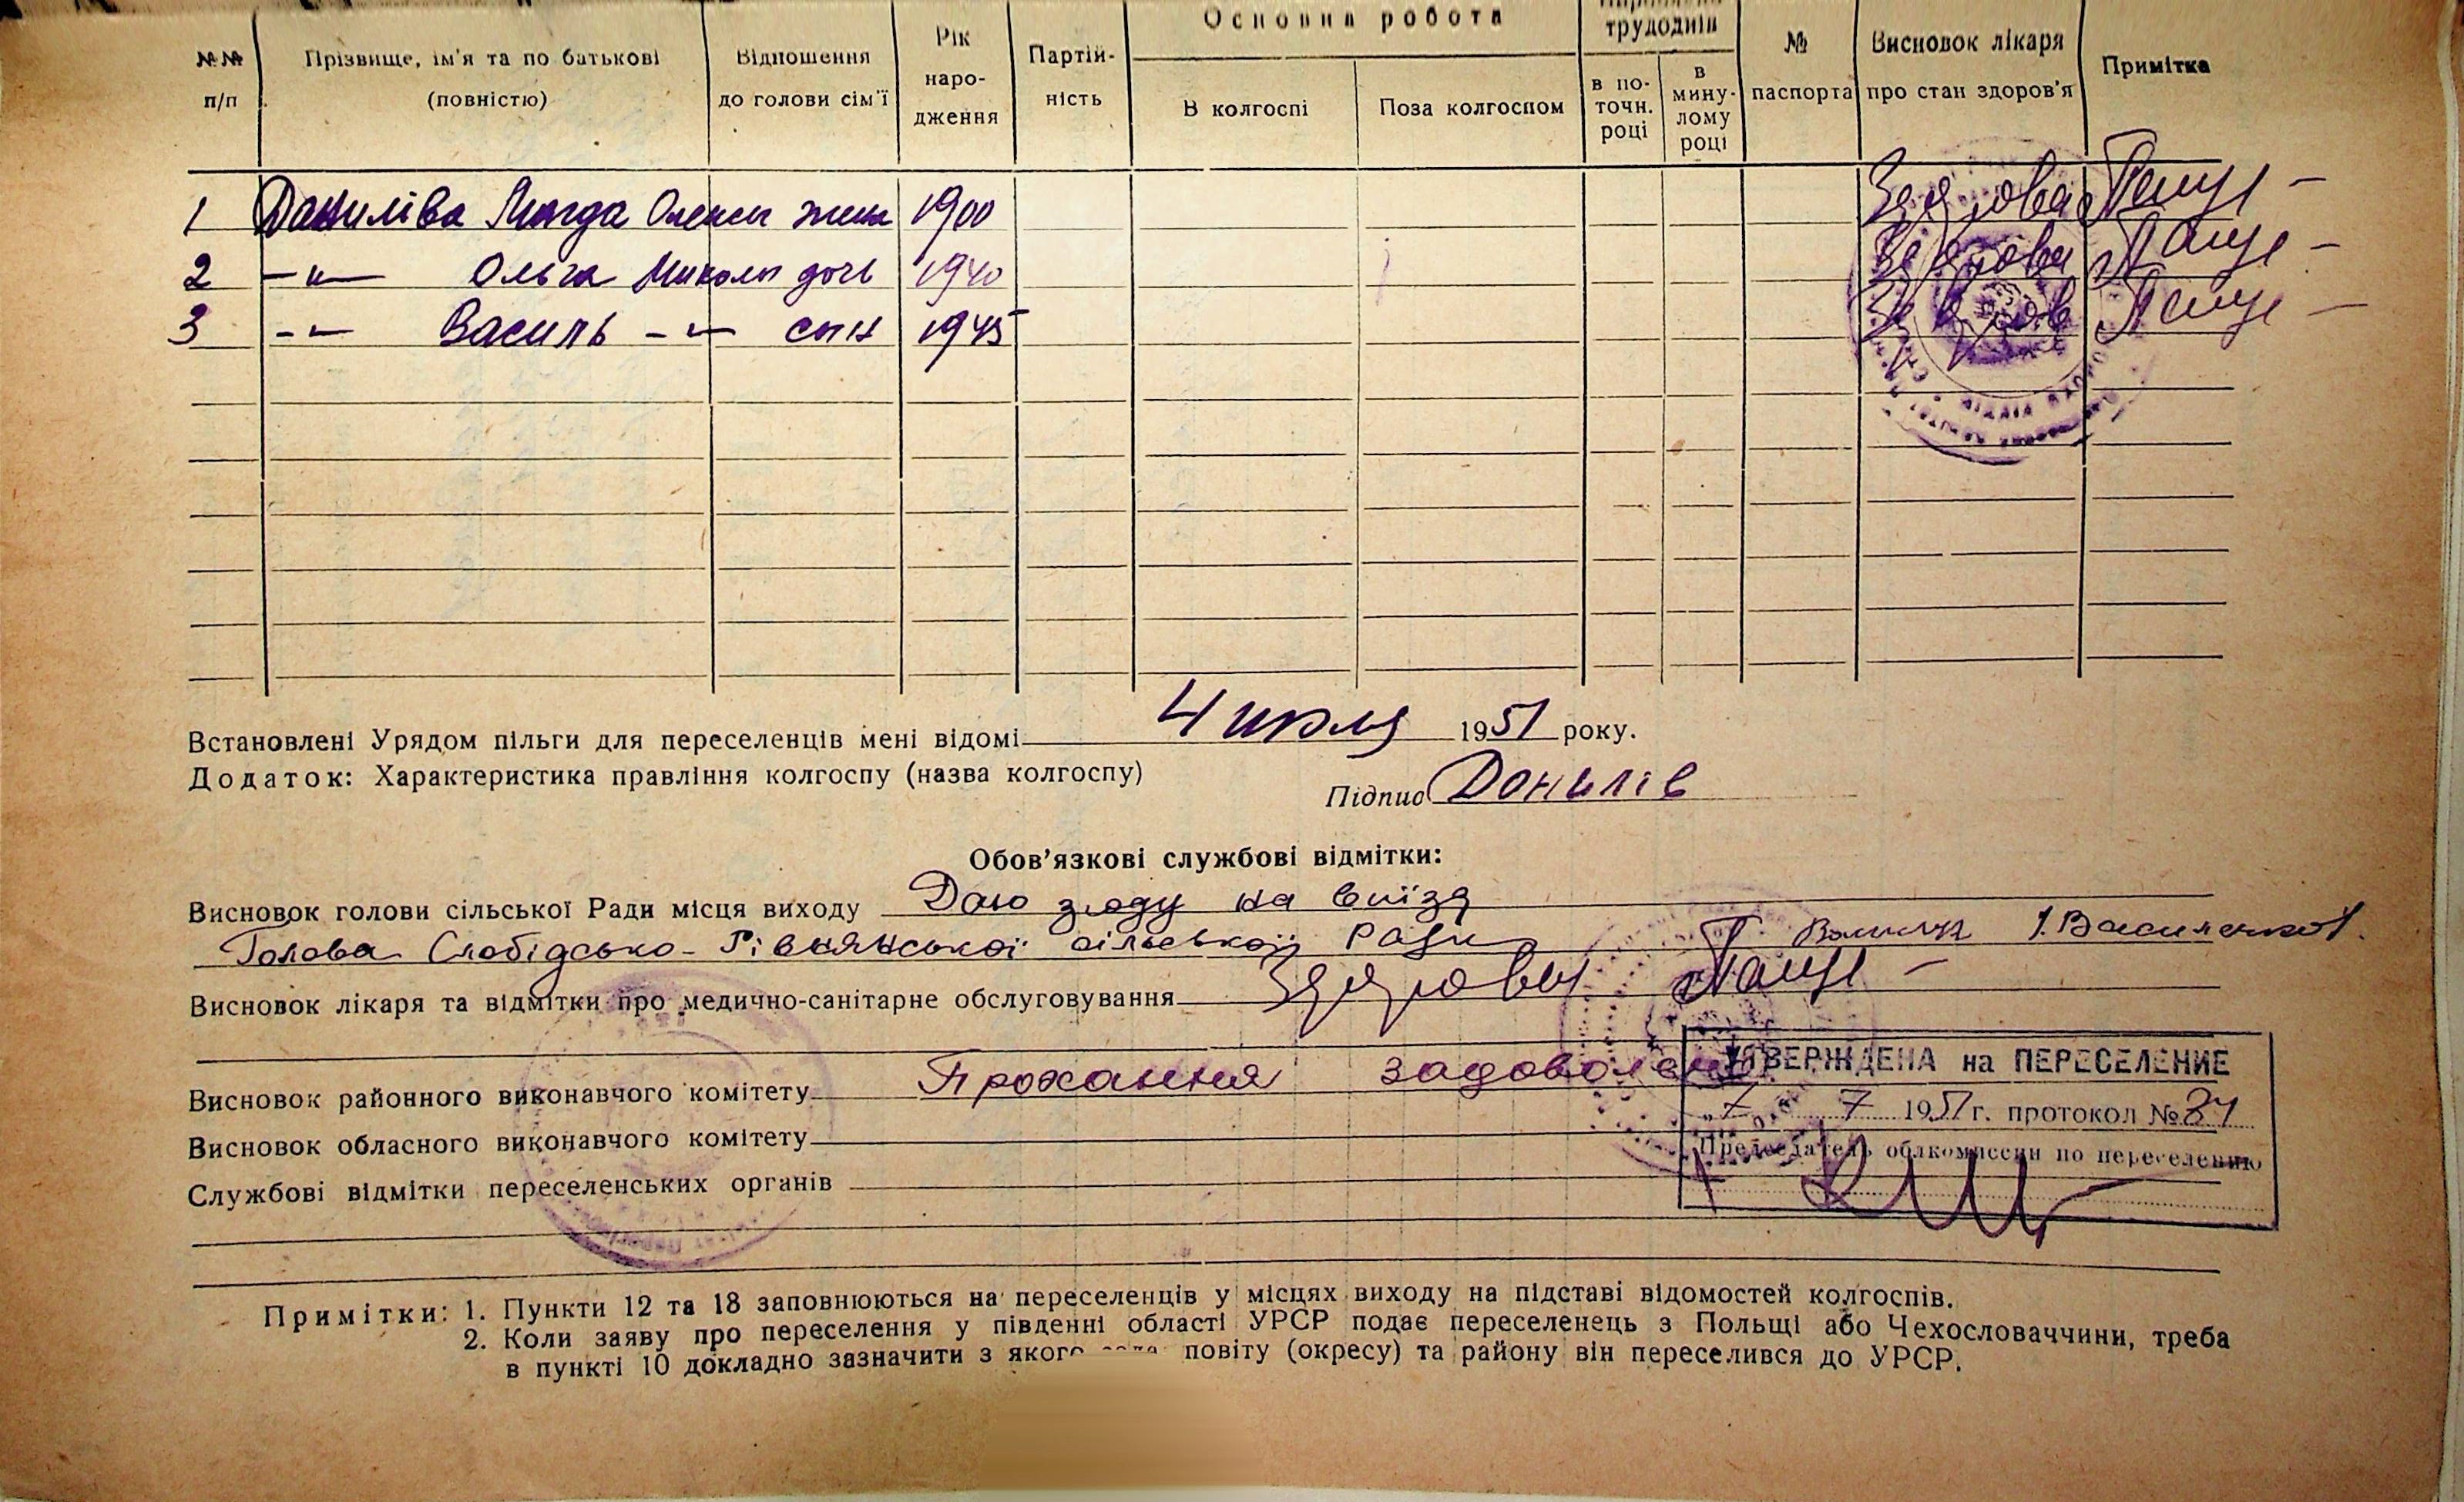 Основна робота
трудоднів
№№ п/п
Прізвище, ім'я та по батькові (повністю)
Відношення до голови сім'ї
Рік народження
Партій-ність
В колгоспі
Поза колгоспом
в по-точн. році
в мину-лому році
№ паспорта
Висновок лікаря про стан здоров'я
Примітка
1 Даниліва Магда Олекси жена 1900 Здорова
2 –"– Ольга Миколы дочь 1940 Здорова
3 –"– Василь –"– сын 1945 Здоров
Встановлені Урядом пільги для переселенців мені відомі 4 июля 1951 року.
Додаток: Характеристика правління колгоспу (назва колгоспу)
Підпис Данилів
Обов'язкові службові відмітки:
Висновок голови сільської Ради місця виходу Даю згоду на виїзд
Голова Слобідсько-Рівнянської сільської Ради
Висновок лікаря та відмітки про медично-санітарне обслуговування Здоровы
Висновок районного виконавчого комітету Прохання задоволено
УТВЕРЖДЕНА на ПЕРЕСЕЛЕНИЕ
„7 7 1951 г. протокол № 34
Председатель облкомиссии по переселению
Висновок обласного виконавчого комітету
Службові відмітки переселенських органів
Примітки: 1. Пункти 12 та 18 заповнюються на переселенців у місцях виходу на підставі відомостей колгоспів.
2. Коли заяву про переселення у південні області УРСР подає переселенець з Польщі або Чехословаччини, треба
в пункті 10 докладно зазначити з якого повіту (окресу) та району він переселився до УРСР.